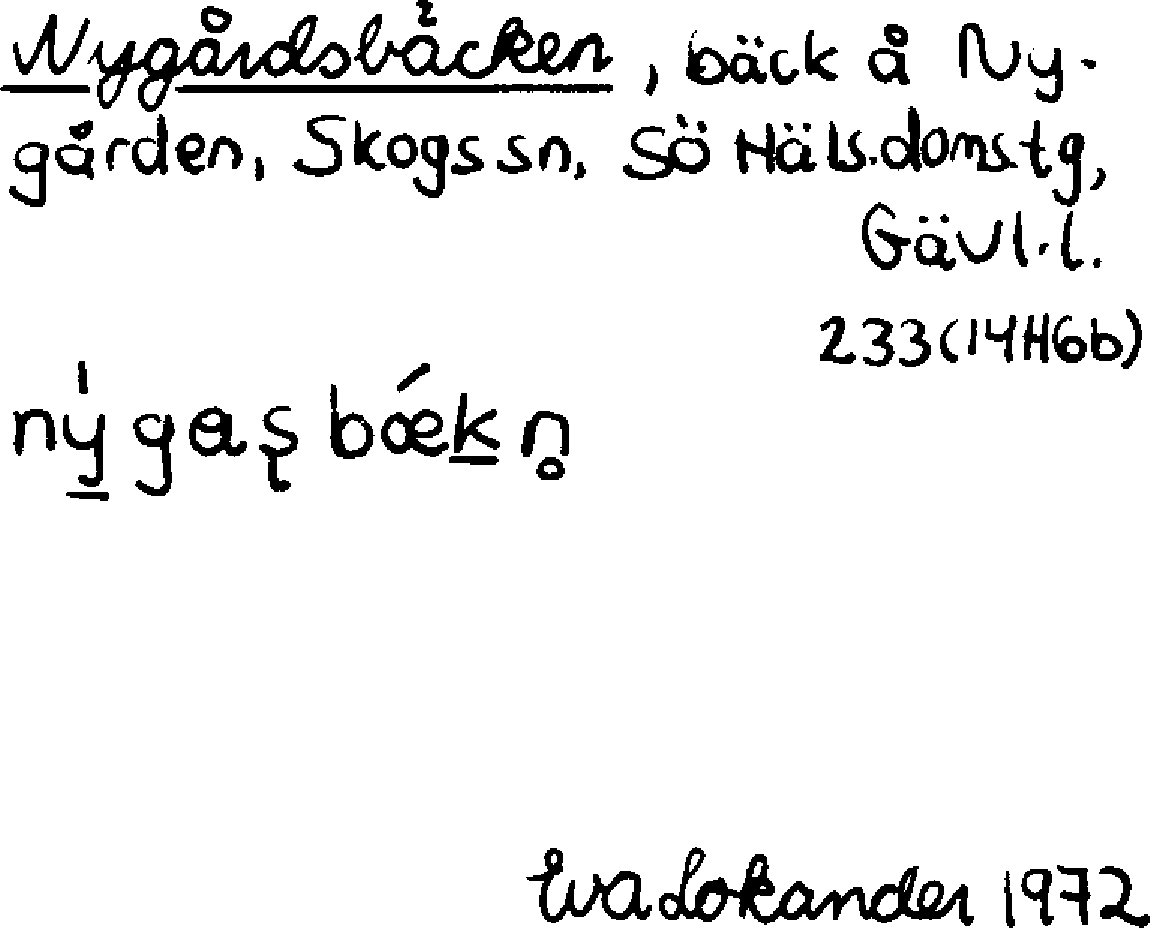 Nygårdsbäcken, bäck å Ny-
gården, Skogs sn, Sö Häls.domstg,
Gävl.l.
233(14H6b)
ny̲̍gaʂbǽk̲n̥
Eva Lokander 1972